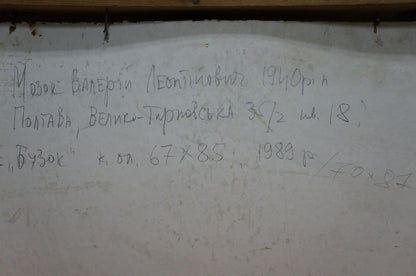 Мозок Валерій Леонтійович 1940 р н
Полтава, Велико-Тирновська 35/2 кв. 18.
"Бузок" к. ол. 67×85 1989 р /70×87